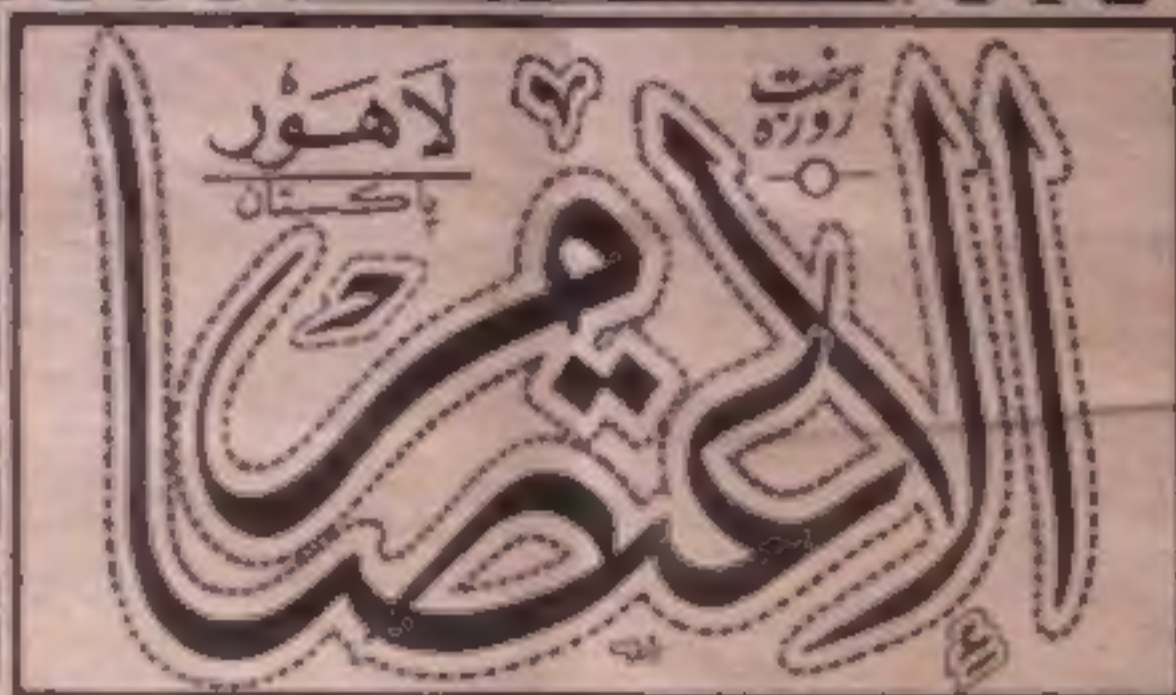 ہفت
روزہ
الاعتصام
لاہور
پاکستان